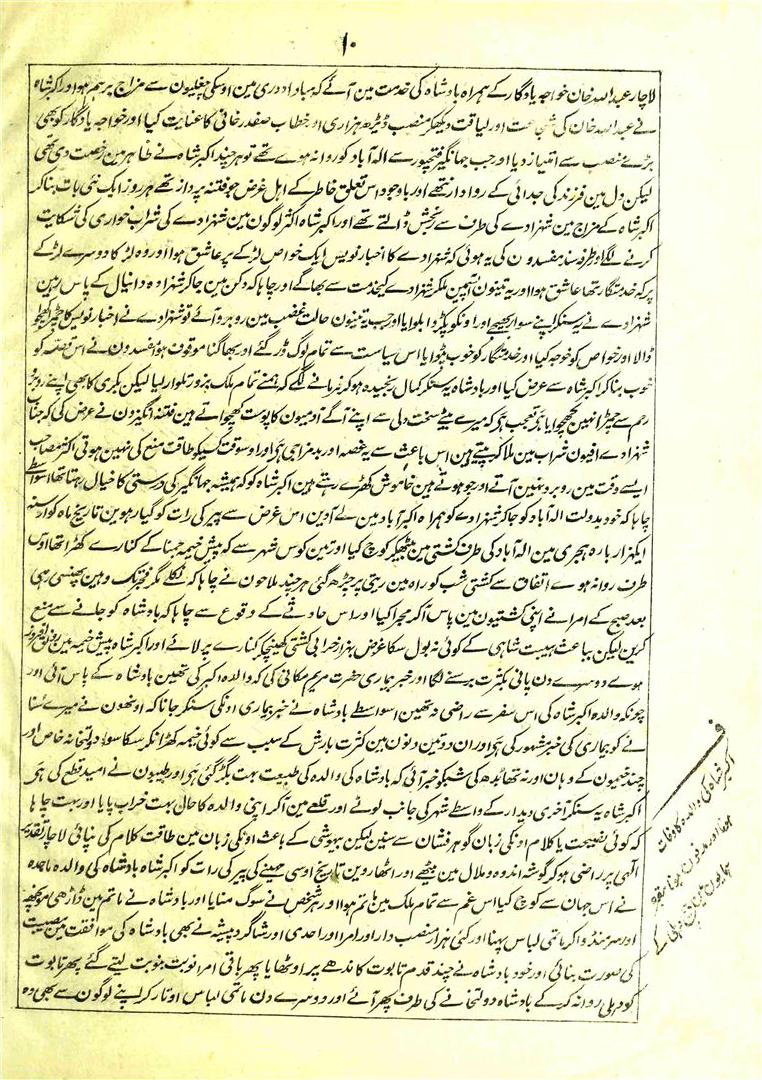 ۱۰
لاچار عبد اللہ خان خواجہ یادگار کے ہمراہ بادشاہ کی خدمت مین آئے کہ مبادا دوری مین اوسکی مغلیون سے مزاج برہم ہو اور اکبر شاہ
نے عبد اللہ خان کی شجاعت اور لیاقت دیکھکر منصب ڈیڑھ ہزاری اور خطاب صفدر خانی کا عنایت کیا اور خواجہ یادگار کو بھی
بڑے منصب سے امتیاز دیا اور جب جہانگیر فتحپور سے الہ آباد کو روانہ ہوے تھے تو ہر چند اکبر شاہ نے ظاہر مین رخصت دی تھی
لیکن دل مین فرزند کی جدائی کے روادار نتھے اور باوجود اس تعلق خاطر کے اہل غرض جو فتنہ پرداز تھے ہر روز ایک نئی بات بناکر
اکبر شاہ کے مزاج مین شہزادے کی طرف سے رنجش ڈالتے تھے اور اکبر شاہ اکثر لوگون مین شہزادے کی شراب خواری کی شکایت
کرنے لگے اور طرفہ سند مفسدون کی یہ ہوئی کہ شہزادے کا اخبار نویس ایک خواص لڑکے پر عاشق ہوا اور وہ لڑکا دوسرے لڑکے
پر کہ خدمتگار تھا عاشق ہوا اور یہ تینون آپسمین ملکر شہزادے کیخدمت سے بھاگے اور چاہا کہ دکن مین جاکر شہزادہ دانیال کے پاس رہین
شہزادے نے یہ سنکر اپنے سوار بھیجے اور اونکو پکڑوا بلوایا اور جب یہ تینون حالت غضب مین روبرو آئے تو شہزادے نے اخبار نویس کا چمڑا کھچوا
ڈالا اور خواص کو خوجہ کیا اور خدمتگار کو خوب پٹوایا اس سیاست سے تمام لوگ ڈر گئے اور بھاگنا موقوف ہوا مفسدون نے اس قصہ کو
خوب بناکر اکبر شاہ سے عرض کیا اور بادشاہ یہ سنکر کمال رنجیدہ ہوکر فرمانے لگے کہ ہمنے تمام ملک بزور تلوار لیا لیکن بکری کا بھی اپنے روبرو
رحم سے چمڑا نہین کھچوایا بڑ تعجب ہی کہ میرے بیٹے سخت دلی سے اپنے آگے آدمیون کا پوست کھچواتے ہین فتنہ انگیزون نے عرض کی کہ جناب
شہزادے افیون شراب مین ملاکر پیتے ہین اس باعث سے یہ غصہ اور بدمزاجی ہی اور اوسوقت کسیکو طاقت منع کی نہین ہوتی اکثر مصاحب
ایسے وقت مین روبرو نہین آتے اور جو ہوتے ہین خاموش کھڑے رہتے ہین اکبر شاہ کو کہ ہمیشہ جہانگیر کی درستی کا خیال رہتا تھا اسواسطے
چاہا کہ خود بدولت الہ آباد کو جاکر شہزادے کو ہمراہ اکبر آباد مین لے آوین اس غرض سے پیر کی رات کو گیارہوین تاریخ ماہ کوار سنہ
ایکہزار بارہ ہجری مین الہ آباد کی طرف کشتی مین بیٹھکر کوچ کیا اور تین کوس شہر سے کہ پیش خیمہ جمنا کے کنارے کھڑا تھا اوس
طرف روانہ ہوے اتفاق سے کشتی شب کو راہ مین ریتی پر چڑھ گئی ہر چند ملاحون نے چاہا کہ نکلے مگر فجر تک وہین پھنسی رہی
بعد صبح کے امرا نے اپنی کشتیون مین پاس آکر مجرا کیا اور اس حادثے کے وقوع سے چاہا کہ بادشاہ کو جانے سے منع
کرین لیکن بباعث ہیبت شاہی کے کوئی نہ بول سکا غرض ہزار خرابی کشتی کھینچکر کنارے پر لائے اور اکبر شاہ پیش خیمہ مین رونق افروز
ہوے دوسرے دن پانی بکثرت برسنے لگا اور خبر بیماری حضرت مریم مکانی کی کہ والدہ اکبر کی تھین بادشاہ کے پاس آئی اور
چونکہ والدہ اکبر شاہ کی اس سفر سے راضی نہ تھین اسواسطے بادشاہ نے خبر بیماری اونکی سنکر جانا کہ اونھون نے میرے ستانے
نے کو بیماری کی خبر مشہور کی ہی اور ان دو تین دنون مین کثرت بارش کے سبب سے کوئی خیمہ کھڑا نکر سکا سواے دولتخانہ خاص اور
چند خیمون کے وہان اور نہ تھا بدھ کی شبکو خبر آئی کہ بادشاہ کی والدہ کی طبیعت بہت بگڑ گئی ہی اور طبیبون نے امید قطع کی ہی
اکبر شاہ یہ سنکر آخری دیدار کے واسطے شہر کی جانب لوٹے اور قلعے مین آکر اپنی والدہ کا حال بہت خراب پایا اور بہت چاہا
کہ کوئی نصیحت یا کلام اونکی زبان گوہر فشان سے سنین لیکن بیہوشی کے باعث اونکی زبان مین طاقت کلام کی نپائی لاچار تقدیر
الٰہی پر راضی ہوکر گوشہ اندوہ و ملال مین بیٹھے اور اٹھاروین تاریخ اوسی مہینے کی پیر کی رات کو اکبر شاہ بادشاہ کی والدہ ماجدہ
نے اس جہان سے کوچ کیا اس غم سے تمام ملک مین ماتم ہوا اور ہر شخص نے سوگ منایا اور بادشاہ نے ماتم مین ڈاڑھی مونچھ
اور سر منڈواکر ماتمی لباس پہنا اور کئی ہزار منصبدار اور امرا اور احدی اور شاگرد پیشہ نے بھی بادشاہ کی موافقت مین مصیبت
کی صورت بنائی اور خود بادشاہ نے چند قدم تابوت کاندھے پر اوٹھایا پھر باقی امرا نوبت بنوبت لیتے گئے پھر تابوت
کو دہلی روانہ کرکے بادشاہ دولتخانے کی طرف پھر آئے اور دوسرے دن ماتمی لباس اوتار کر اپنے لوگون سے بھی وہ
ف
اکبر شاہ کی والدہ کا وفات
ہونا اور مدفون ہونا مقبرہ
ہمایون مین دہلی کے